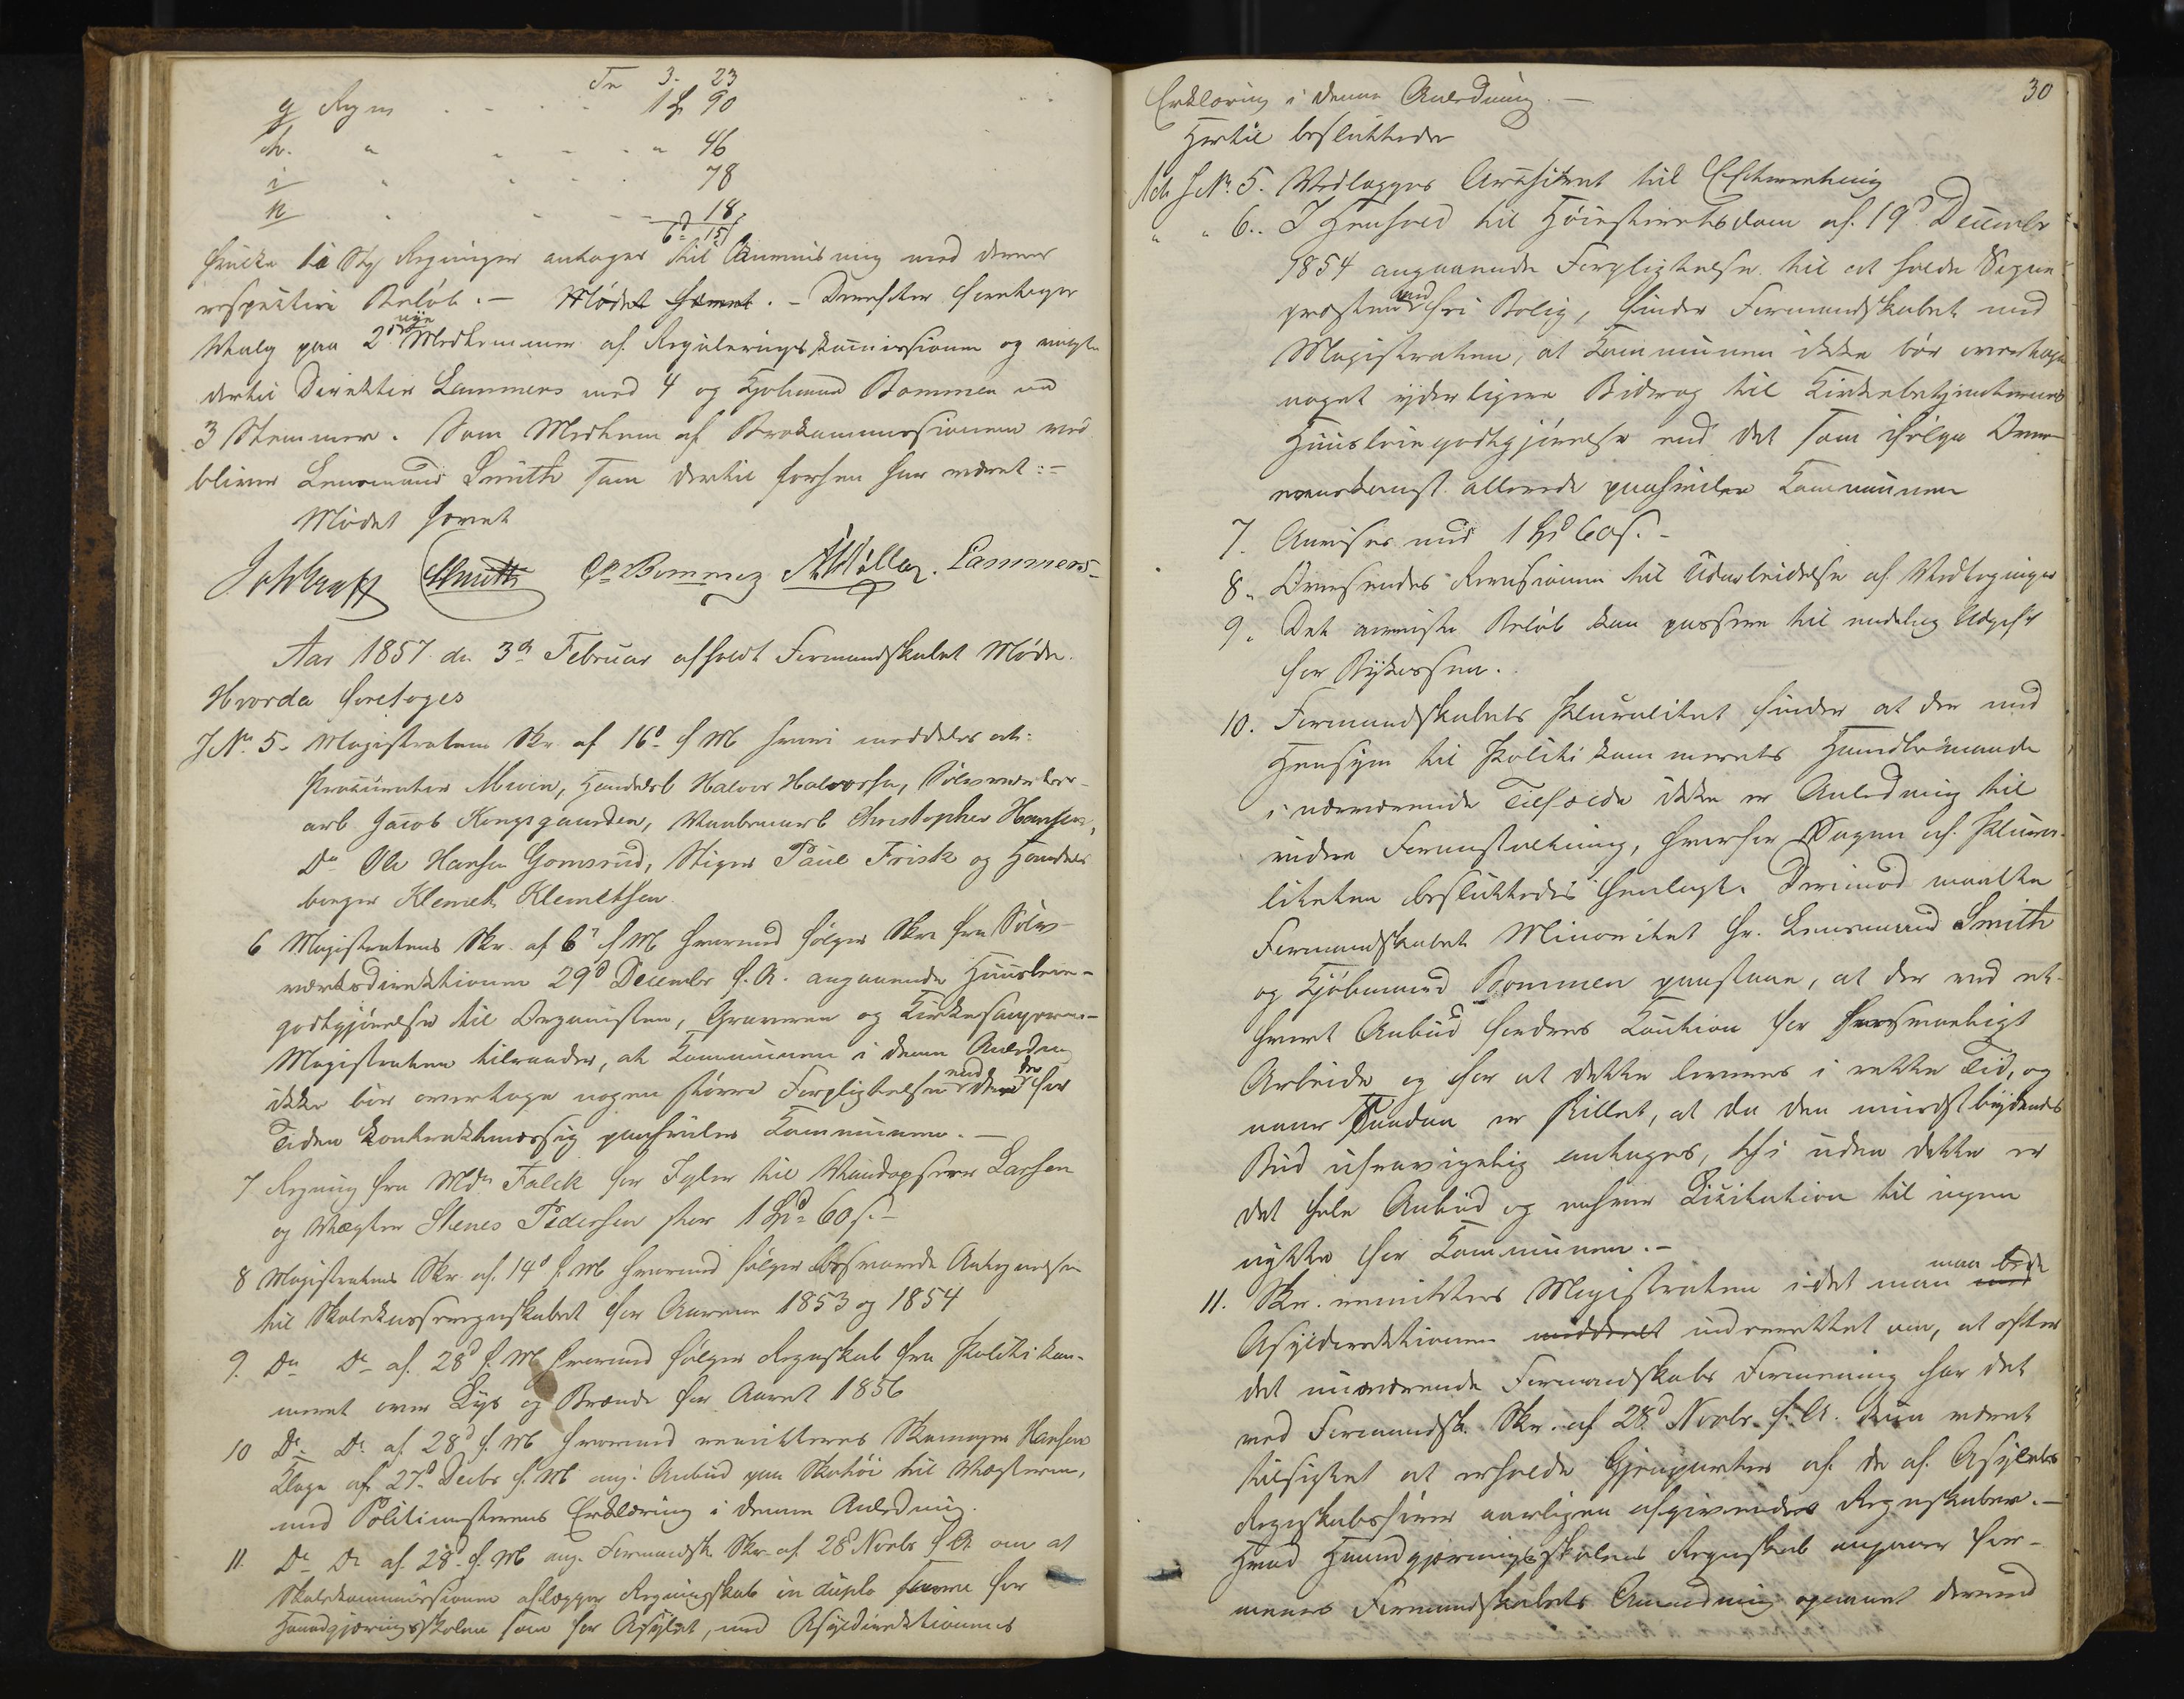 Tr 3. 23
g Regn . . . 1 " 90
h. " . . . " 46
i " . . . 78
k " . . . 18
6 " 15
hvilke Regninger antoges til Anvisning med deres
respective Beløb. — Mødet hævet. — Derefter foretoges
Valg paa 2de nye Medlemmer af Reguleringskommissionen og valgte
dertil Direktør Lammers med 4 og Kjøbmand Bommen med
3 Stemmer. Som Medlem af Brokommissionen ved
bliver Lensmand Smith som dertil forhen har været. —
Mødet hævet
Smith CP Bommen AMøller. Lammers
Aar 1857 den 3d Februar afholdt Formandskabet Møde.
Hvorda foretoges
JNo 5. Magistratens Skr. af 16d f M hvori meddeles at:
Prokurator Moein, Handelsb Halvor Halvorsen, Sølvværks-
arb Jacob Kongsgaarden, Vaabenarb Christopher Hansen,
Do Ole Hansen Gomsrud, Stiger Paul Frisk og Handels
borger Klemet Klemetsen
6 Magistratens Skr. af 6d f M hvormed følger Skr. fra Sølv-
værksdirektionen 29d Decembr f. A. angaaende Huusleie-
godtgjørelse til Organisten, Graveren og Kirkesangeren —
Magistraten tilraader, at Kommunen i denne Anledning
ikke bør overtage nogen større Forpligtelse end den der for
Tiden kontraktmæssig paahviler Kommunen. —
7 Regning fra Mdm Falck for Igler til Vandopsener Larsen
og Vægter Stenes Pedersen stor 1 Spd 60 s. —
8 Magistratens Skr. af 14d f. M hvormed følger besvarede Antegnelser
til Skolekasseregnskabet for Aarene 1853 og 1854
9. Do Do af 28d f. M hvormed følger Regnskab fra Politikam-
meret over Lys og Brænde for Aaret 1856
10 Do Do af 28d f. M hvormed remitteres Skomager Hansen
Klage af 27d Decbr f. M ang: Anbud paa Skotøi til Vægterne,
med Politimesterens Erklæring i denne Anledning.
11. Do Do af 28d f. M ang. Formandsk. Skr. af 28 Novbr f A om at
Skolekommissionen aflægger Regnskab in duplo saavel for
Haandgjerningsskolen som for Asylet, med Asyldirektionens
30
Erklæring i denne Anledning. —
Hertil besluttedes
Ad J No 5. Vedlægges Archivet til Efterretning
" " 6. I Henhold til Høiesteretsdom af 19d Decembr
1854 angaaende Forpligtelse til at holde Sogne
præsten med fri Bolig, finder Formandskabet med
Magistraten, at Kommunen ikke bør overtage
noget yderligere Bidrag til Kirkebetjenternes
Huusleiegodtgjørelse end det som ifølge Over-
eenskomst allerede paahviler Kommunen
7. Anvises med 1 Spd 60 s. —
8. Oversendes Revisionen til Udarbeidelse af Vedtegninger
9. Det anviste Beløb kan passere til endelig Udgift
for Bykassen.
10. Formandskabets Pluralitet finder at der med
Hensyn til Politikammerets Handlemaade
i nærværende Tilfælde ikke er Anledning til
videre Foranstaltning, hvorfor Sagen af Plura-
liteten besluttedes henlagt. Derimod maatte
Formandskabets Minoritet Hr. Lensmand Smith
og Kjøbmand Bommen paastaae, at der ved et-
hvert Anbud fordres Kaution for forsvarligt
Arbeide og for at dette leveres i rette Tid, og
naar Saadan er stillet, at da den mindstbydendes
Bud ufravigelig antages, thi uden dette er
det hele Anbud og enhver Licitation til ingen
nytte for Kommunen. —
11. Skr. remitteres Magistraten idet man med maa bede
Asyldirektionen meddeelt underrettet om, at efter
det nuværende Formandskabs Formening har det
ved Formandsk. Skr. af 28d Novbr. f. A. kun været
tilsigtet at erholde Gjenparter af de af Asylets
Regnskabsfører aarligen afgivende Regnskaber. —
Hvad Haandgjerningsskolens Regnskab angaaer for-
menes Formandskabets Anmodning opnaaet derved